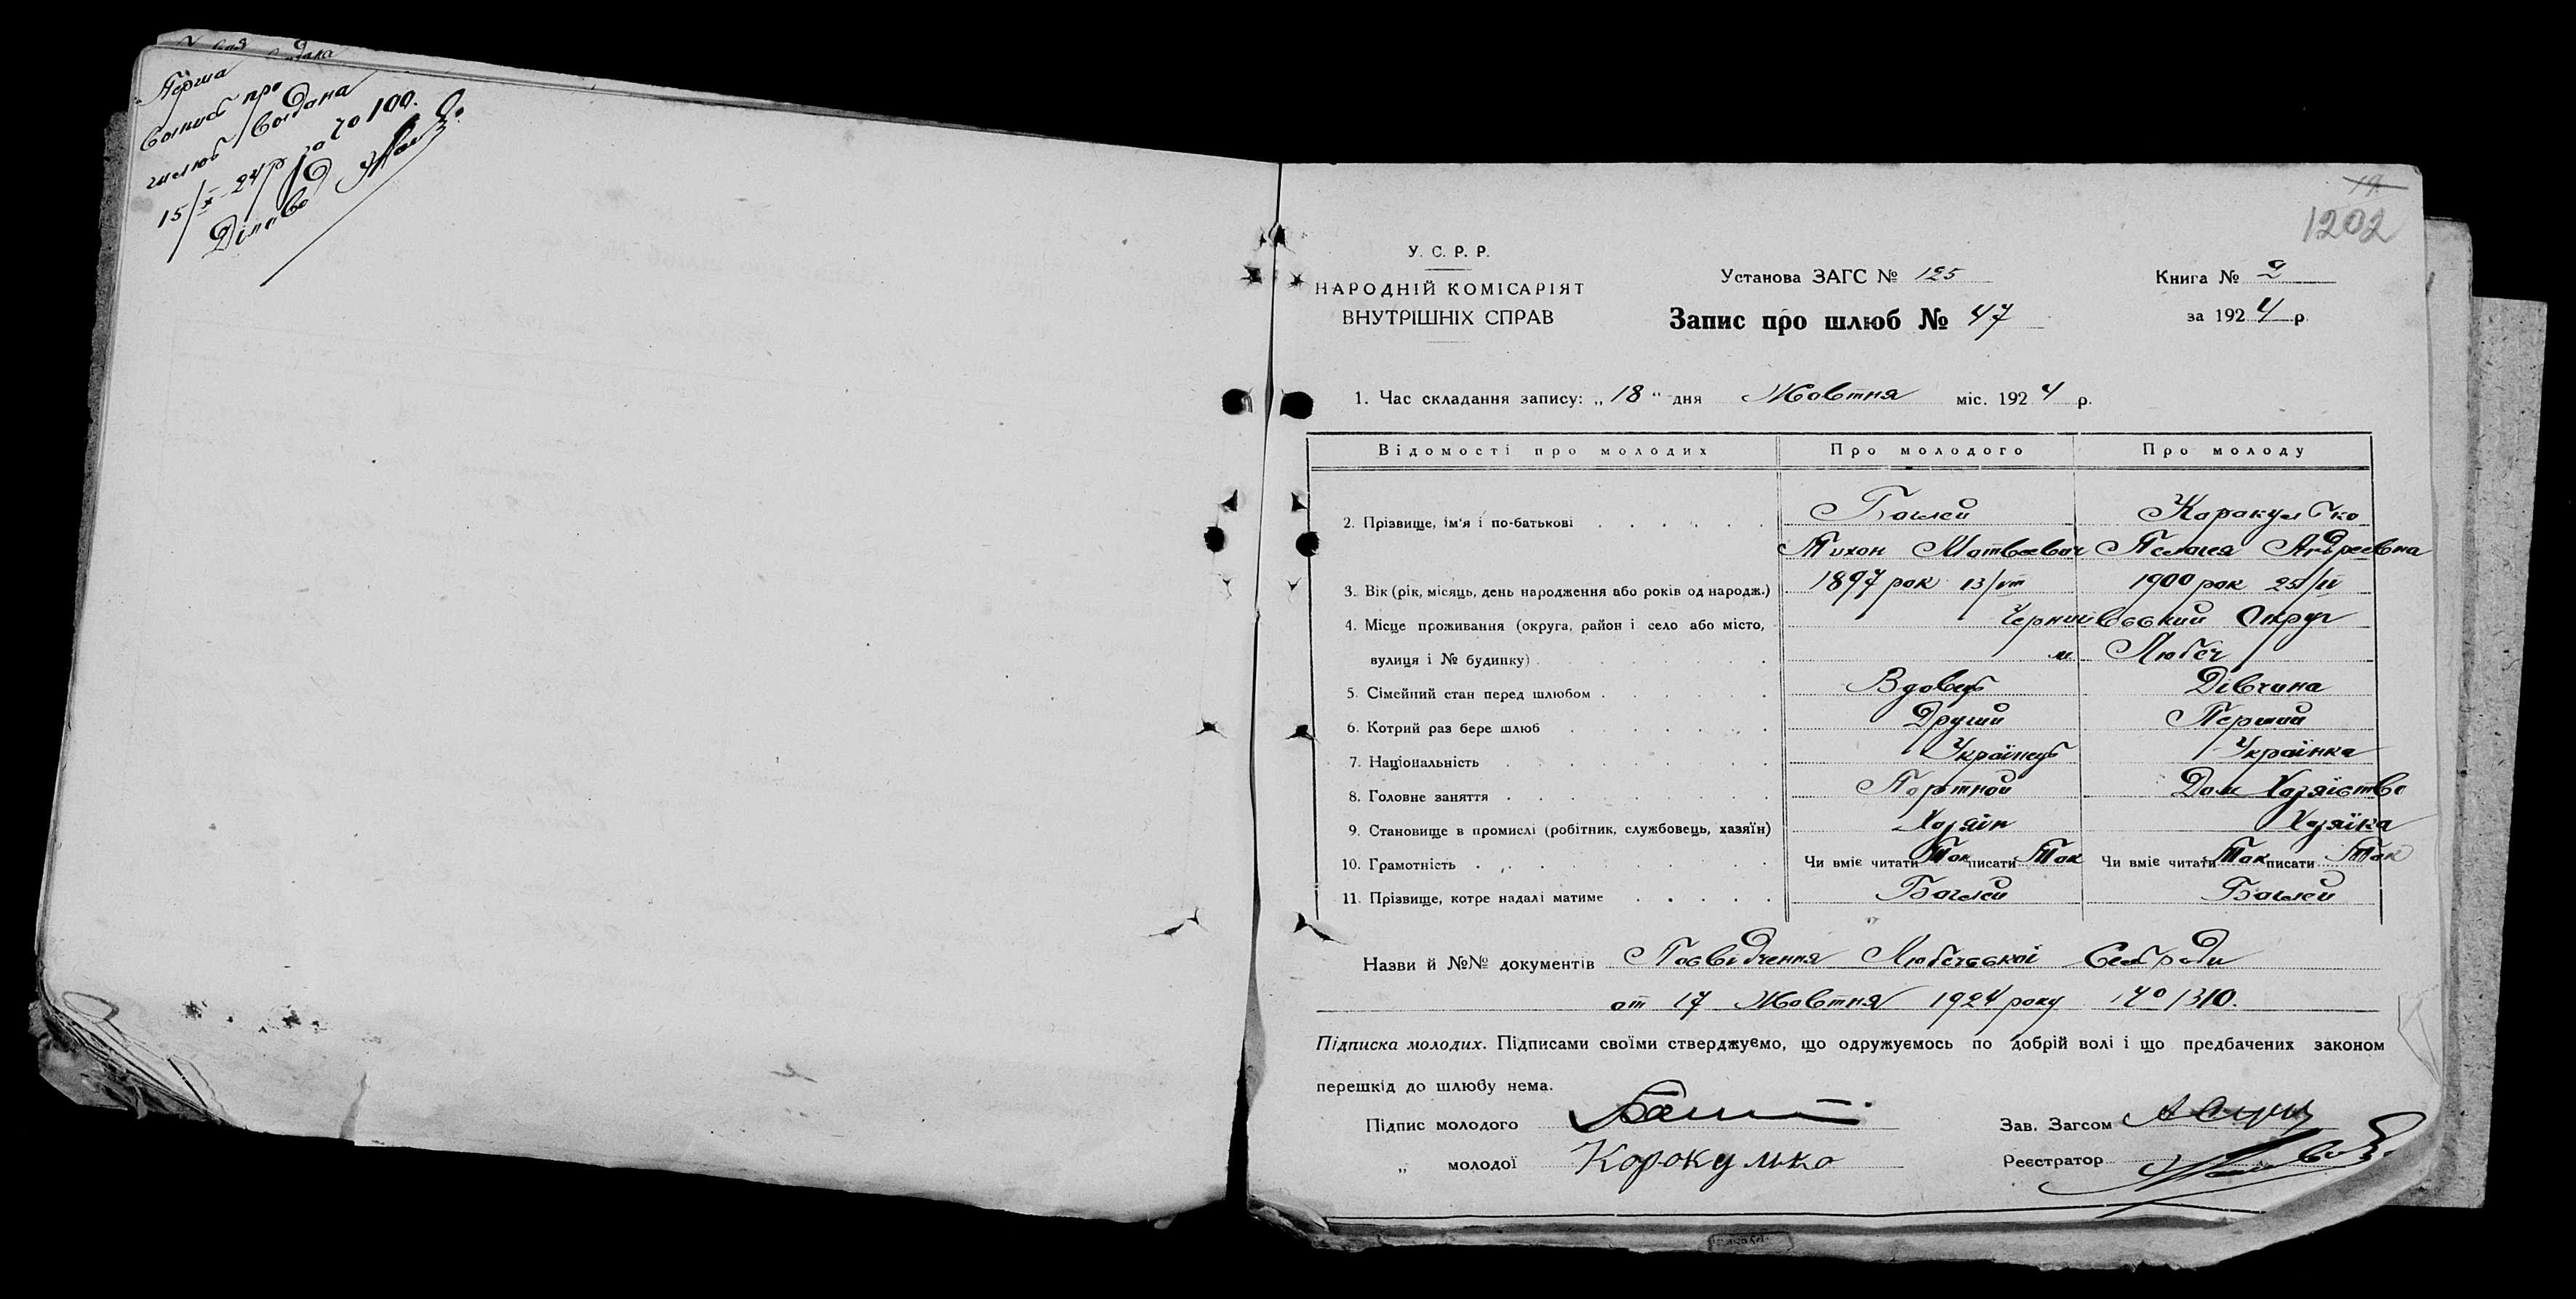 Перша
випись про
шлюб видана
15/X 24 р за № 100.
Діловод
1202
У. С. Р. Р.
НАРОДНІЙ КОМІСАРІЯТ
ВНУТРІШНІХ СПРАВ
Установа ЗАГС № 125
Запис про шлюб № 47
Книга № 2
за 1924 р
1. Час складання запису: „ 18 " дня Жовтня міс. 1924 р.
Відомості про молодих Про молодого Про молоду
2. Прізвище, ім'я і по-батькові Баглей Каракулько
Тихон Матвеевич Пелагея Андреевна
3. Вік (рік, місяць, день народження або років од народж.) 1897 рок 13/VIII 1900 рок 25/IV
4. Місце проживання (округа, район і село або місто, Чернигівський Округ
вулиця і № будинку) м. Любеч
5. Сімейний стан перед шлюбом Вдовець Дівчина
6. Котрий раз бере шлюб Другий Перший
7. Національність Українець Українка
8. Головне заняття Портной Дом Хозяйство
9. Становище в промислі (робітник, службовець, хазяїн) Хозяїн Хозяїка
10. Грамотність Чи вміє читати Так писати Так Чи вміє читати Так писати Так
11. Прізвище, котре надалі матиме Баглей Баглей
Назви й №№ документів Посвідчення Любечської Сельради
от 17 Жовтня 1924 року № 1310.
Підписка молодих. Підписами своїми стверджуємо, що одружуємось по добрій волі і що предбачених законом
перешкід до шлюбу нема.
Підпис молодого
„ молодої Корокулько
Зав. Загсом
Реєстратор